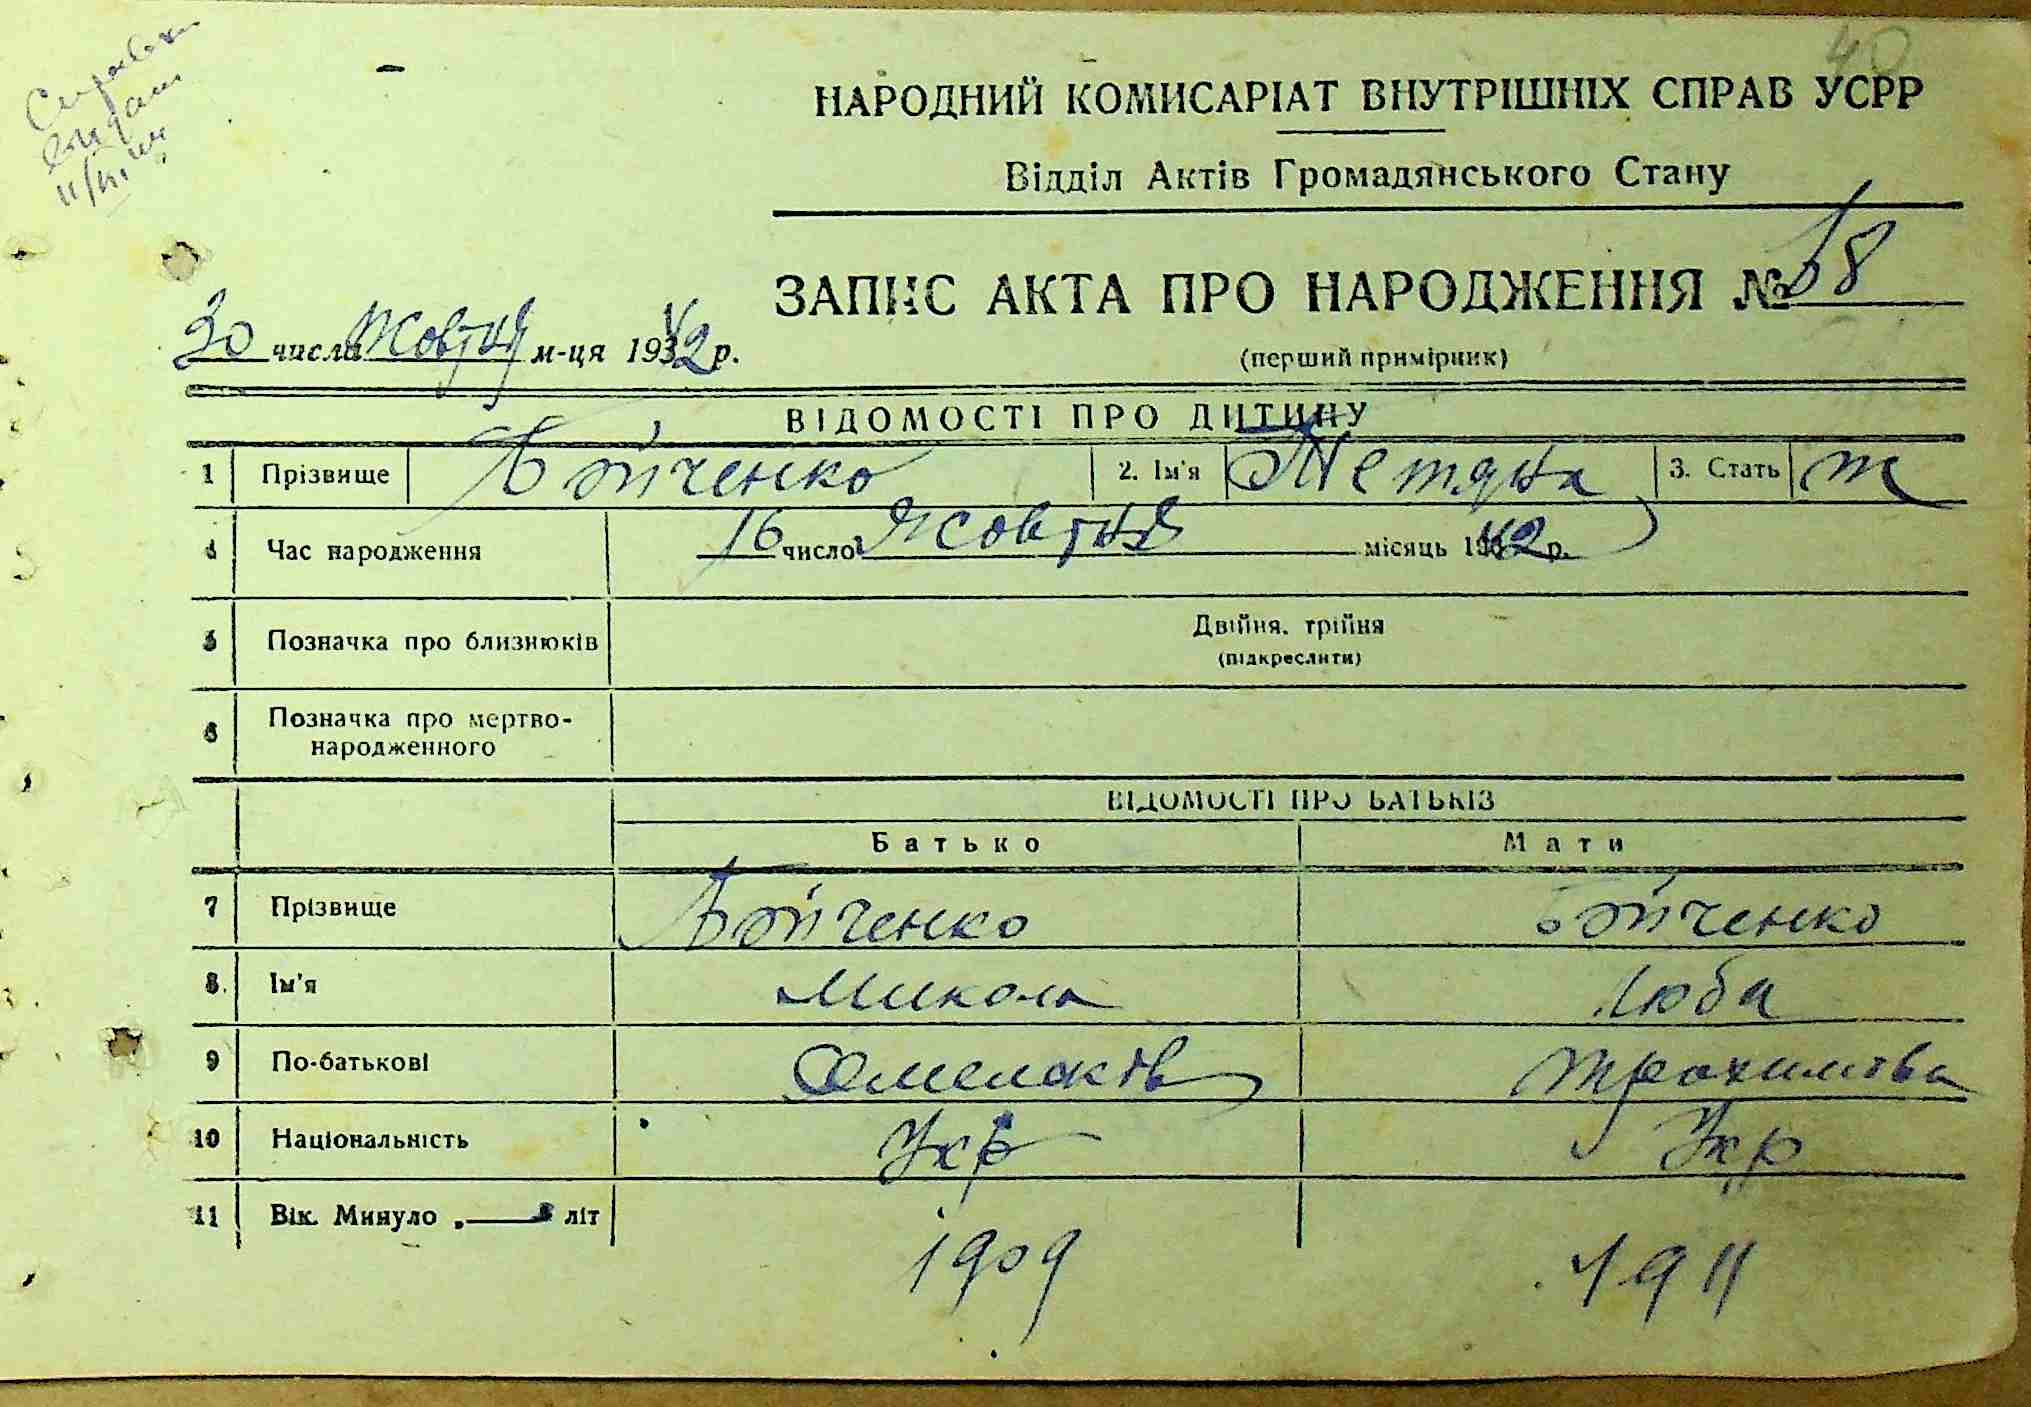 40
НАРОДНИЙ КОМИСАРІАТ ВНУТРІШНІХ СПРАВ УСРР
Відділ Актів Громадянського Стану
ЗАПИС АКТА ПРО НАРОДЖЕННЯ № 68
30 числа Жовтня м-ця 1942 р.
(перший примірник)
ВІДОМОСТІ ПРО ДИТИНУ
1 Прізвище Бойченко 2. Ім'я Тетяна 3. Стать ж
4 Час народження 16 число Жовтня місяць 1942 р.
5 Позначка про близнюків Двійня, трійня
(підкреслити)
6 Позначка про мертво-
народженного
ВІДОМОСТІ ПРО БАТЬКІВ
Батько Мати
7 Прізвище Бойченко Бойченко
8. Ім'я Микола Люба
9 По-батькові Омелькові Трохимівна
10 Національність Укр Укр
11 Вік. Минуло літ 1909 1911